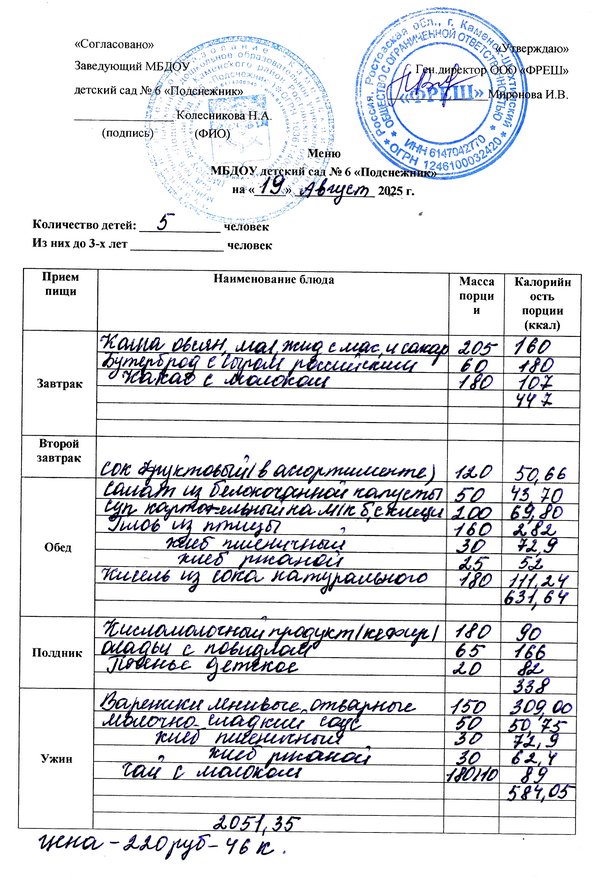 «Согласовано»
«Утверждаю»
Заведующий МБДОУ
Ген.директор ООО «ФРЕШ»
детский сад № 6 «Подснежник»
Миронова И.В.
Колесникова Н.А.
(подпись) (ФИО)
Россия, Ростовская обл., г. Каменск-Шахтинский
ОБЩЕСТВО С ОГРАНИЧЕННОЙ ОТВЕТСТВЕННОСТЬЮ
«ФРЕШ»
ИНН 6147042770
ОГРН 1246100032420
Меню
МБДОУ детский сад № 6 «Подснежник»
на «19» Август 2025 г.
Количество детей: 5 человек
Из них до 3-х лет человек
Прием пищи Наименование блюда Масса порции Калорийность порции (ккал)
Завтрак
Каша овсян, мол, жид с мас, и сахар 205 160
Бутерброд с сыром российским 60 180
Какао с молоком 180 107
447
Второй завтрак
сок фруктовый (в ассортименте) 120 50,66
Обед
салат из белокочанной капусты 50 43,70
суп картофельный на м/к б, с 200 69,80
Плов из птицы 160 282
хлеб пшеничный 30 72,9
хлеб ржаной 25 52
Кисель из сока натурального 180 111,24
631,64
Полдник
Кисломолочный продукт (кефир) 180 90
оладьи с повидлом 65 166
Печенье детское 20 82
338
Ужин
Вареники ленивые, отварные 150 309,00
молочно сладкий соус 50 50,75
хлеб пшеничный 30 72,9
хлеб ржаной 30 62,4
Чай с молоком 180/10 89
584,05
2051,35
цена - 220 руб - 46 к.